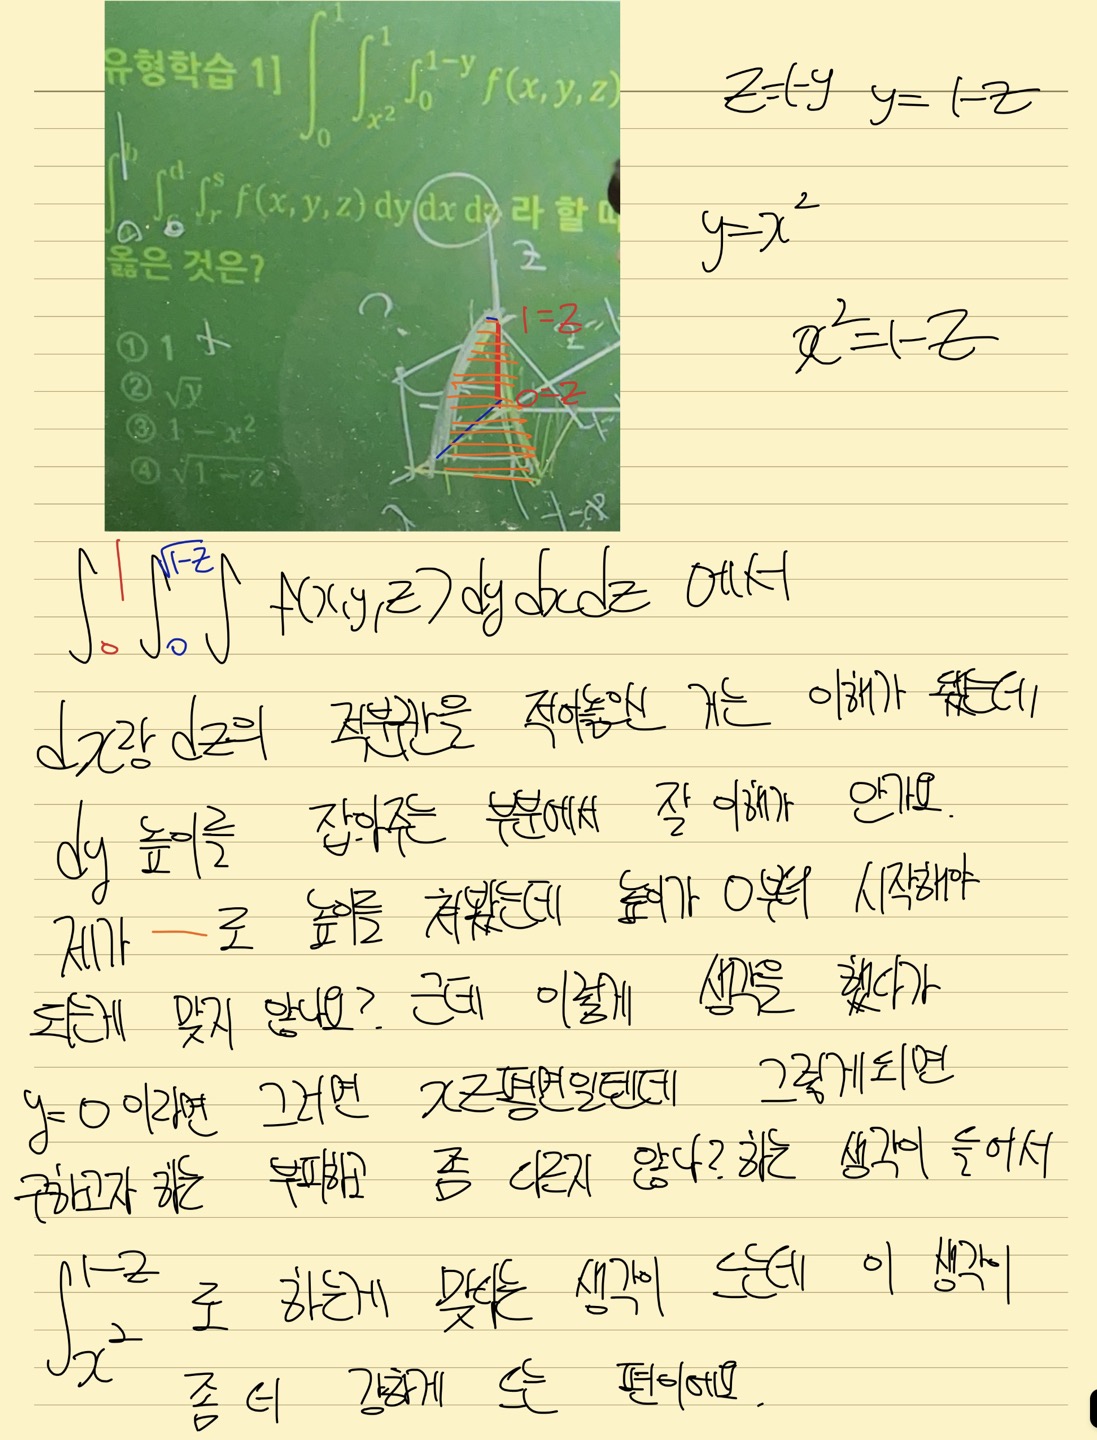 유형학습 1] ∫₀¹ ∫_{x²}^1 ∫₀^{1-y} f(x, y, z)
∫ ∫_c^d ∫_r^s f(x, y, z) dy dx dz 라 할 때
옳은 것은?
① 1
② √y
③ 1 - x²
④ √1-z
z
1=z
0=z
x
z=1-y y=1-z
y=x²
x²=1-z
∫₀¹ ∫₀^{√1-z} ∫ f(x,y,z) dy dx dz 에서
dx랑 dz의 적분구간을 적어놓으신 거는 이해가 됐는데
dy 높이를 잡아주는 부분에서 잘 이해가 안가요.
제가 — 로 높이를 쳐봤는데 높이가 0부터 시작해야
되는게 맞지 않나요? 근데 이렇게 생각을 했다가
y=0 이라면 그러면 xz평면일텐데 그렇게되면
구하고자 하는 부피하고 좀 다르지 않나? 하는 생각이 들어서
∫_{x²}^{1-z} 로 하는게 맞다는 생각이 드는데 이 생각이
좀 더 강하게 드는 편이에요.